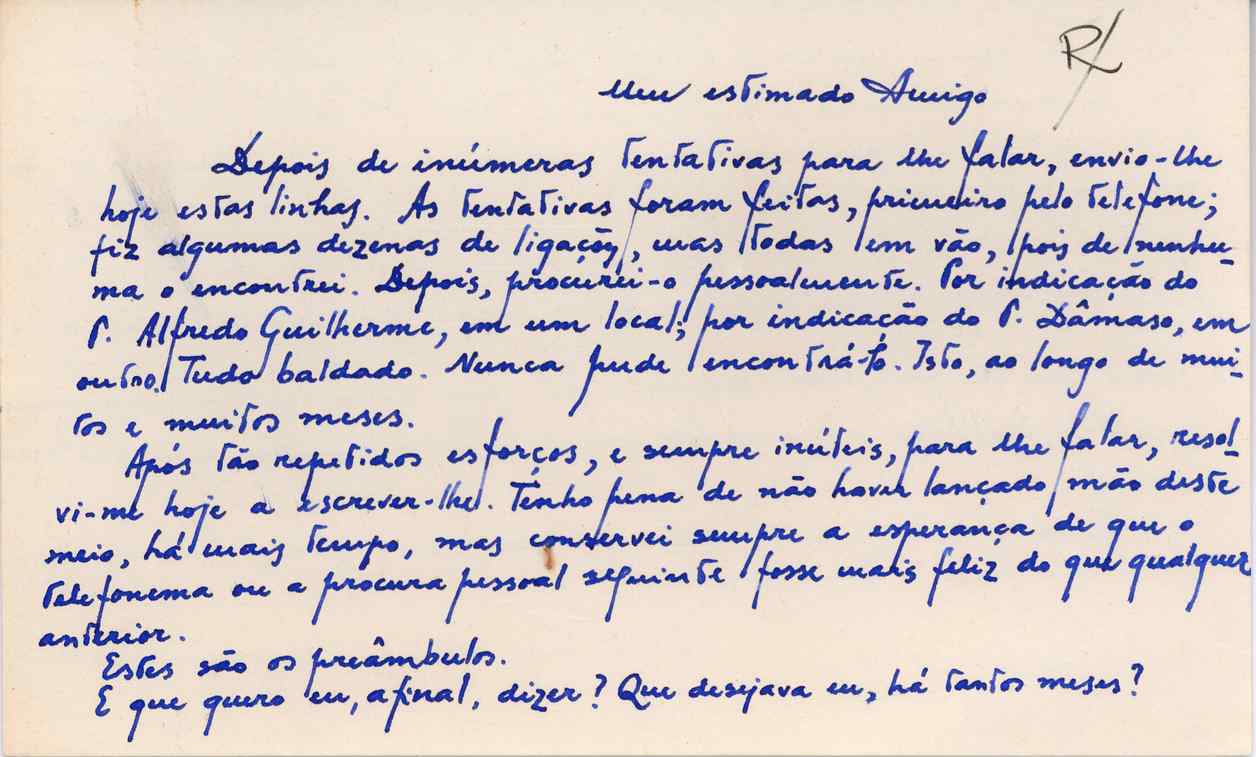 R/
Meu estimado Amigo
Depois de inúmeras tentativas para lhe falar, envio-lhe
hoje estas linhas. As tentativas foram feitas, primeiro pelo telefone;
fiz algumas dezenas de ligações, mas todas em vão, pois de nenhu-
ma o encontrei. Depois, procurei-o pessoalmente. Por indicação do
P. Alfredo Guilherme, em um local; por indicação do P. Dâmaso, em
outro. Tudo baldado. Nunca pude encontrá-lo. Isto, ao longo de mui-
tos e muitos meses.
Após tão repetidos esforços, e sempre inúteis, para lhe falar, resol-
vi-me hoje a escrever-lhe. Tenho pena de não haver lançado mão deste
meio, há mais tempo, mas conservei sempre a esperança de que o
telefonema ou a procura pessoal seguinte fosse mais feliz do que qualquer
anterior.
Estes são os preâmbulos.
E que quero eu, afinal, dizer? Que desejava eu, há tantos meses?